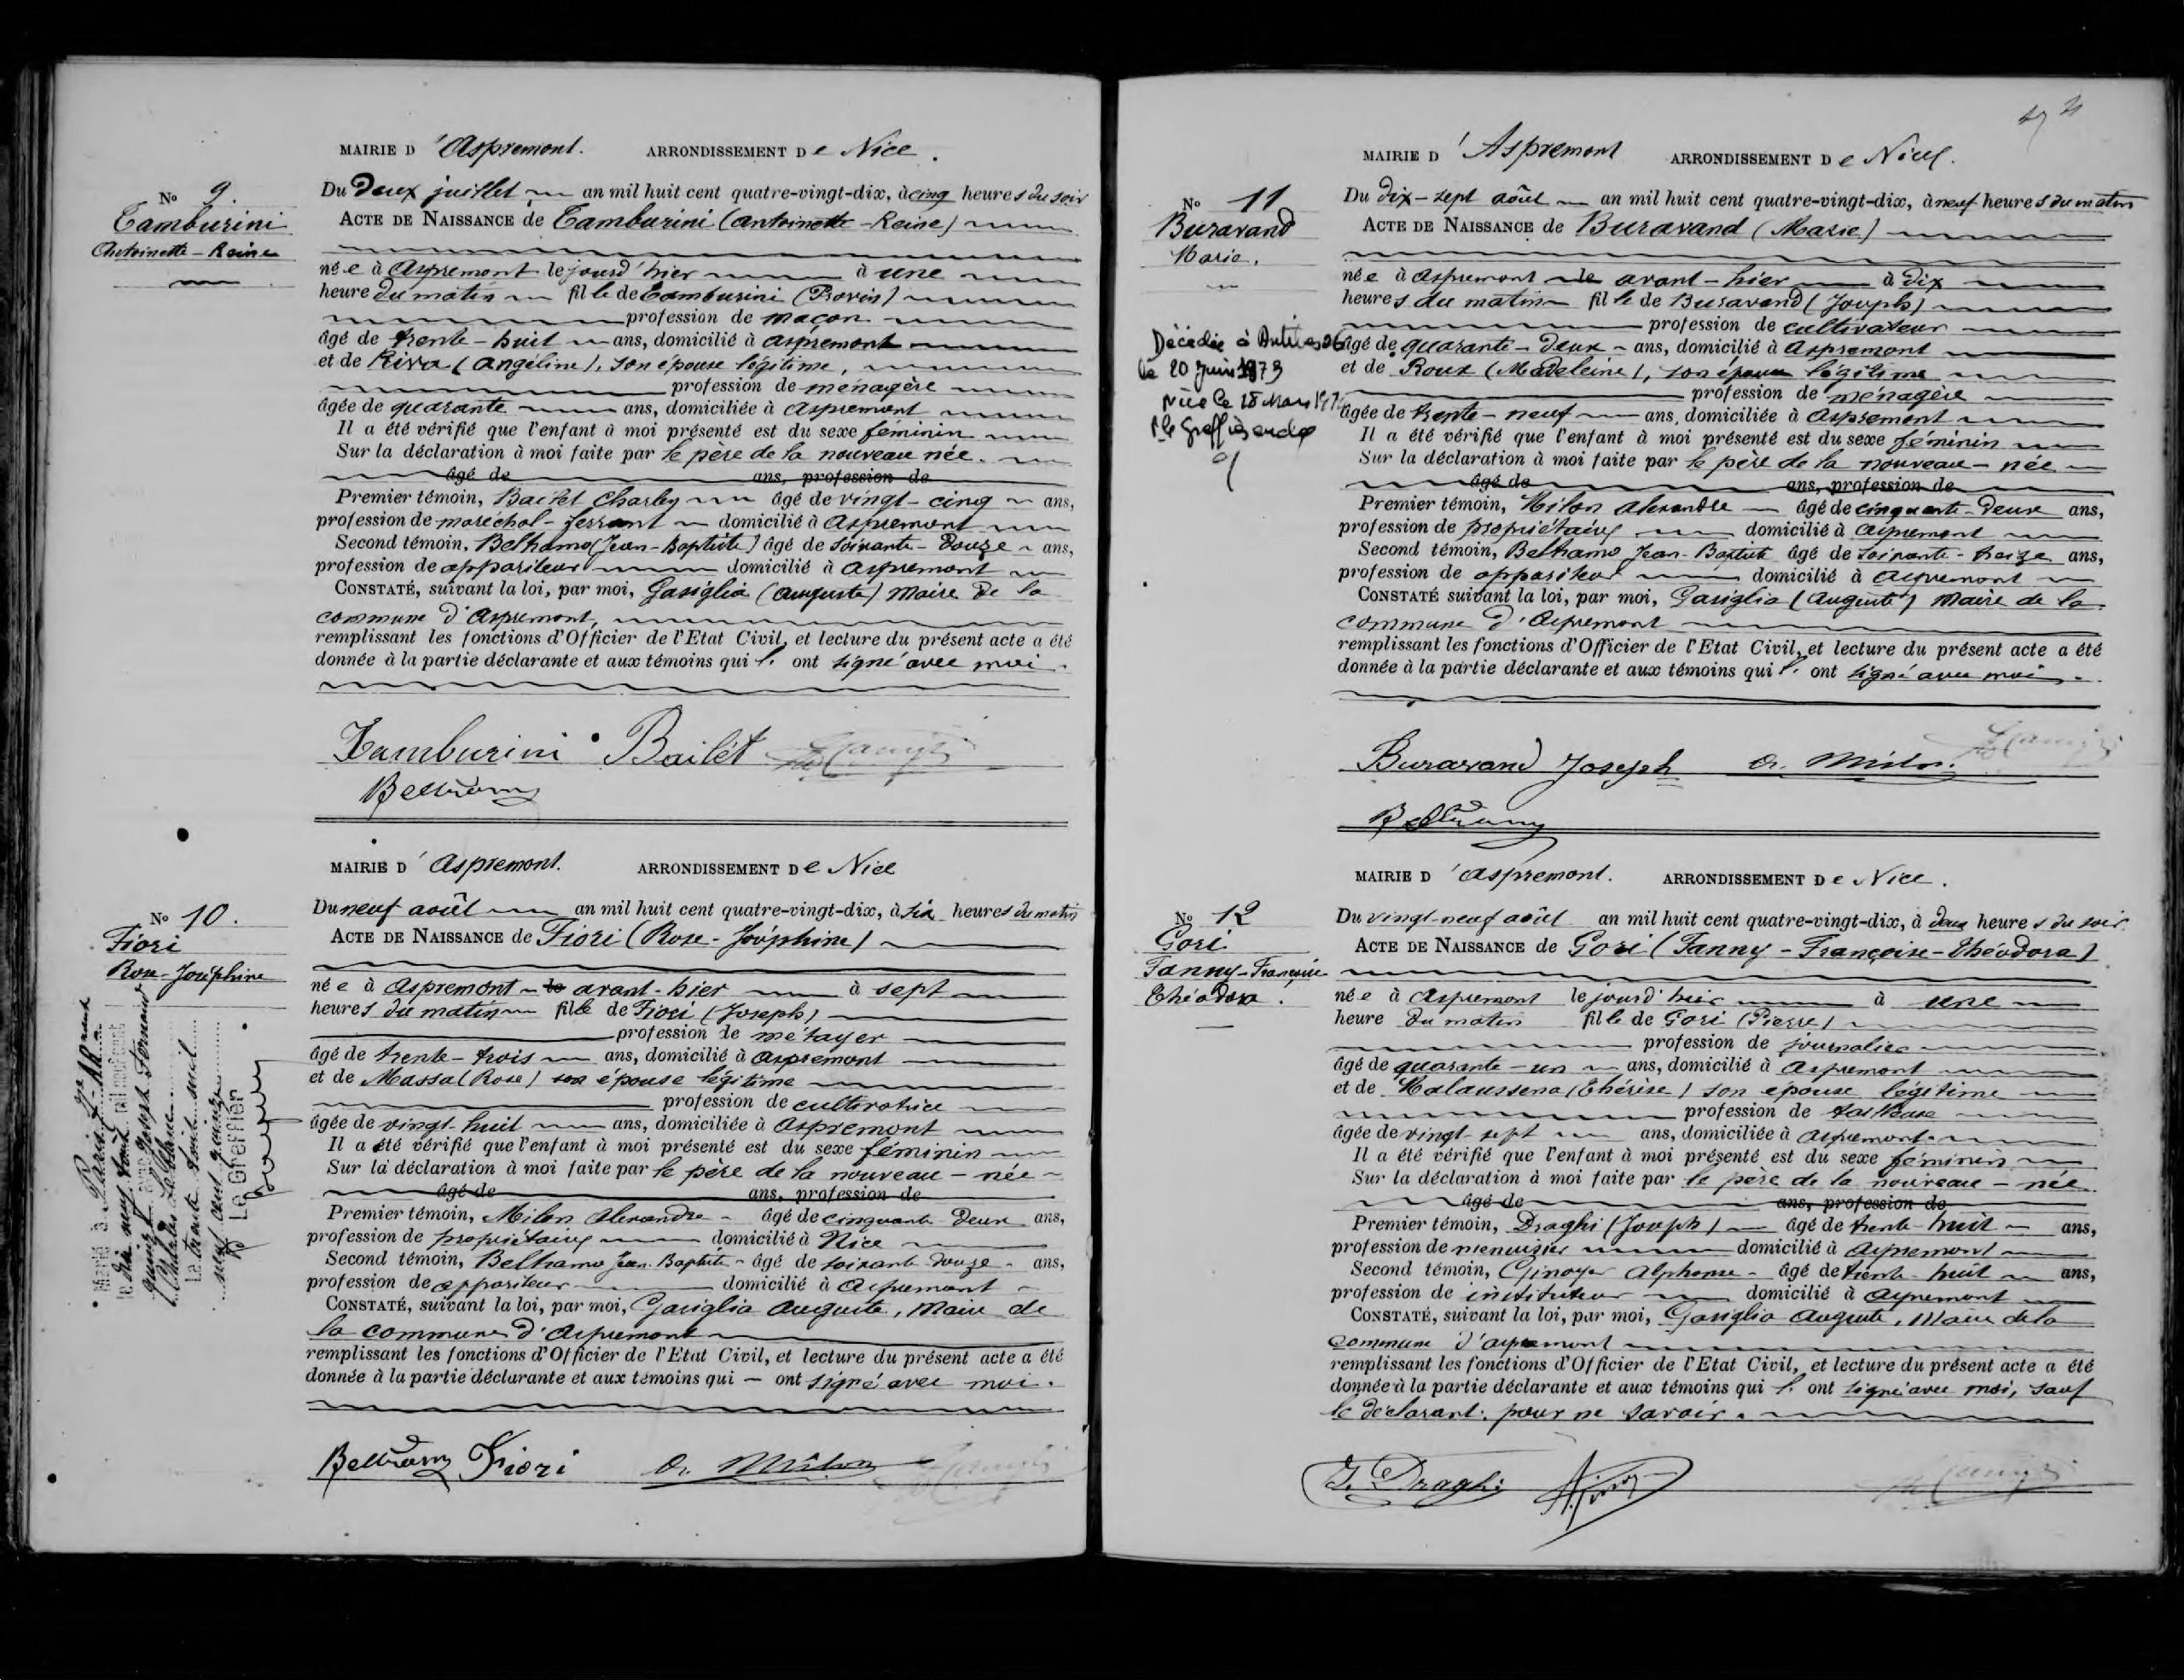 MAIRIE D'Aspremont. ARRONDISSEMENT De Nice.
No 9.
Tamburini
Antoinette-Reine
Du Deux juillet an mil huit cent quatre-vingt-dix, à cinq heures du soir
ACTE DE NAISSANCE de Tamburini (Antoinette-Reine)
née à Aspremont le jourd'hier à une
heure du matin fille de Tamburini
profession de maçon
âgé de trente-huit ans, domicilié à Aspremont
et de Riva (Angéline), son épouse légitime,
profession de ménagère
âgée de quarante ans, domiciliée à Aspremont
Il a été vérifié que l'enfant à moi présenté est du sexe féminin
Sur la déclaration à moi faite par le père de la nouveau née.
âgé de ans, profession de
Premier témoin, Bailet Charles âgé de vingt-cinq ans,
profession de maréchal-ferrant domicilié à Aspremont
Second témoin, Beltramo (Jean-Baptiste) âgé de soixante-douze ans,
profession de appariteur domicilié à Aspremont
CONSTATÉ, suivant la loi, par moi, Gasiglia (Auguste) Maire de la
commune d'Aspremont,
remplissant les fonctions d'Officier de l'Etat Civil, et lecture du présent acte a été
donnée à la partie déclarante et aux témoins qui l. ont signé avec moi.
Tamburini Bailet
MAIRIE D'Aspremont. ARRONDISSEMENT De Nice
No 10.
Fiori
Rose-Joséphine
Du neuf août an mil huit cent quatre-vingt-dix, à six heures du matin
ACTE DE NAISSANCE de Fiori (Rose-Joséphine)
née à Aspremont le avant-hier à sept
heures du matin fille de Fiori (Joseph)
profession de métayer
âgé de trente-trois ans, domicilié à Aspremont
et de Massa (Rose) son épouse légitime
profession de cultivatrice
âgée de vingt-huit ans, domiciliée à Aspremont
Il a été vérifié que l'enfant à moi présenté est du sexe féminin
Sur la déclaration à moi faite par le père de la nouveau-née
âgé de ans, profession de
Premier témoin, Milon Alexandre âgé de cinquante deux ans,
profession de propriétaire domicilié à Nice
Second témoin, Beltramo Jean-Baptiste âgé de soixante douze ans,
profession de appariteur domicilié à Aspremont
CONSTATÉ, suivant la loi, par moi, Gasiglia Auguste, Maire de
la commune d'Aspremont
remplissant les fonctions d'Officier de l'Etat Civil, et lecture du présent acte a été
donnée à la partie déclarante et aux témoins qui ont signé avec moi.
Fiori A. Milon
Le Greffier
MAIRIE D'Aspremont ARRONDISSEMENT De Nice.
No 11
Buravand
Marie.
Décédée à Antibes 06
le 20 Juin 1973
Du dix-sept août an mil huit cent quatre-vingt-dix, à neuf heures du matin
ACTE DE NAISSANCE de Buravand (Marie)
née à Aspremont le avant-hier à dix
heures du matin fille de Buravand (Joseph)
profession de cultivateur
âgé de quarante-deux ans, domicilié à Aspremont
et de Roux (Madeleine), son épouse légitime
profession de ménagère
âgée de trente-neuf ans, domiciliée à Aspremont
Il a été vérifié que l'enfant à moi présenté est du sexe féminin
Sur la déclaration à moi faite par le père de la nouveau-née
âgé de ans, profession de
Premier témoin, Milon Alexandre âgé de cinquante-deux ans,
profession de propriétaire domicilié à Aspremont
Second témoin, Beltramo Jean-Baptiste âgé de soixante-treize ans,
profession de appariteur domicilié à Aspremont
CONSTATÉ suivant la loi, par moi, Gasiglia (Auguste) Maire de la
commune d'Aspremont
remplissant les fonctions d'Officier de l'Etat Civil, et lecture du présent acte a été
donnée à la partie déclarante et aux témoins qui l. ont signé avec moi.
Buravand Joseph A. Milon
MAIRIE D'Aspremont. ARRONDISSEMENT De Nice.
No 12
Gori
Fanny-Françoise
Théodora.
Du vingt-neuf août an mil huit cent quatre-vingt-dix, à deux heures du soir.
ACTE DE NAISSANCE de Gori (Fanny-Françoise-Théodora)
née à Aspremont le jourd'hier à une
heure du matin fille de Gori (Pierre)
profession de journalier
âgé de quarante-un ans, domicilié à Aspremont
et de Malaussena (Thérèse) son épouse légitime
profession de tailleuse
âgée de vingt-sept ans, domiciliée à Aspremont
Il a été vérifié que l'enfant à moi présenté est du sexe féminin
Sur la déclaration à moi faite par le père de la nouveau-née
âgé de ans, profession de
Premier témoin, Draghi (Joseph) âgé de trente-huit ans,
profession de menuisier domicilié à Aspremont
Second témoin, Alphonse âgé de trente-huit ans,
profession de instituteur domicilié à Aspremont
CONSTATÉ, suivant la loi, par moi, Gasiglia Auguste, Maire de la
commune d'Aspremont
remplissant les fonctions d'Officier de l'Etat Civil, et lecture du présent acte a été
donnée à la partie déclarante et aux témoins qui l. ont signé avec moi, sauf
le déclarant, pour ne savoir.
J. Draghi